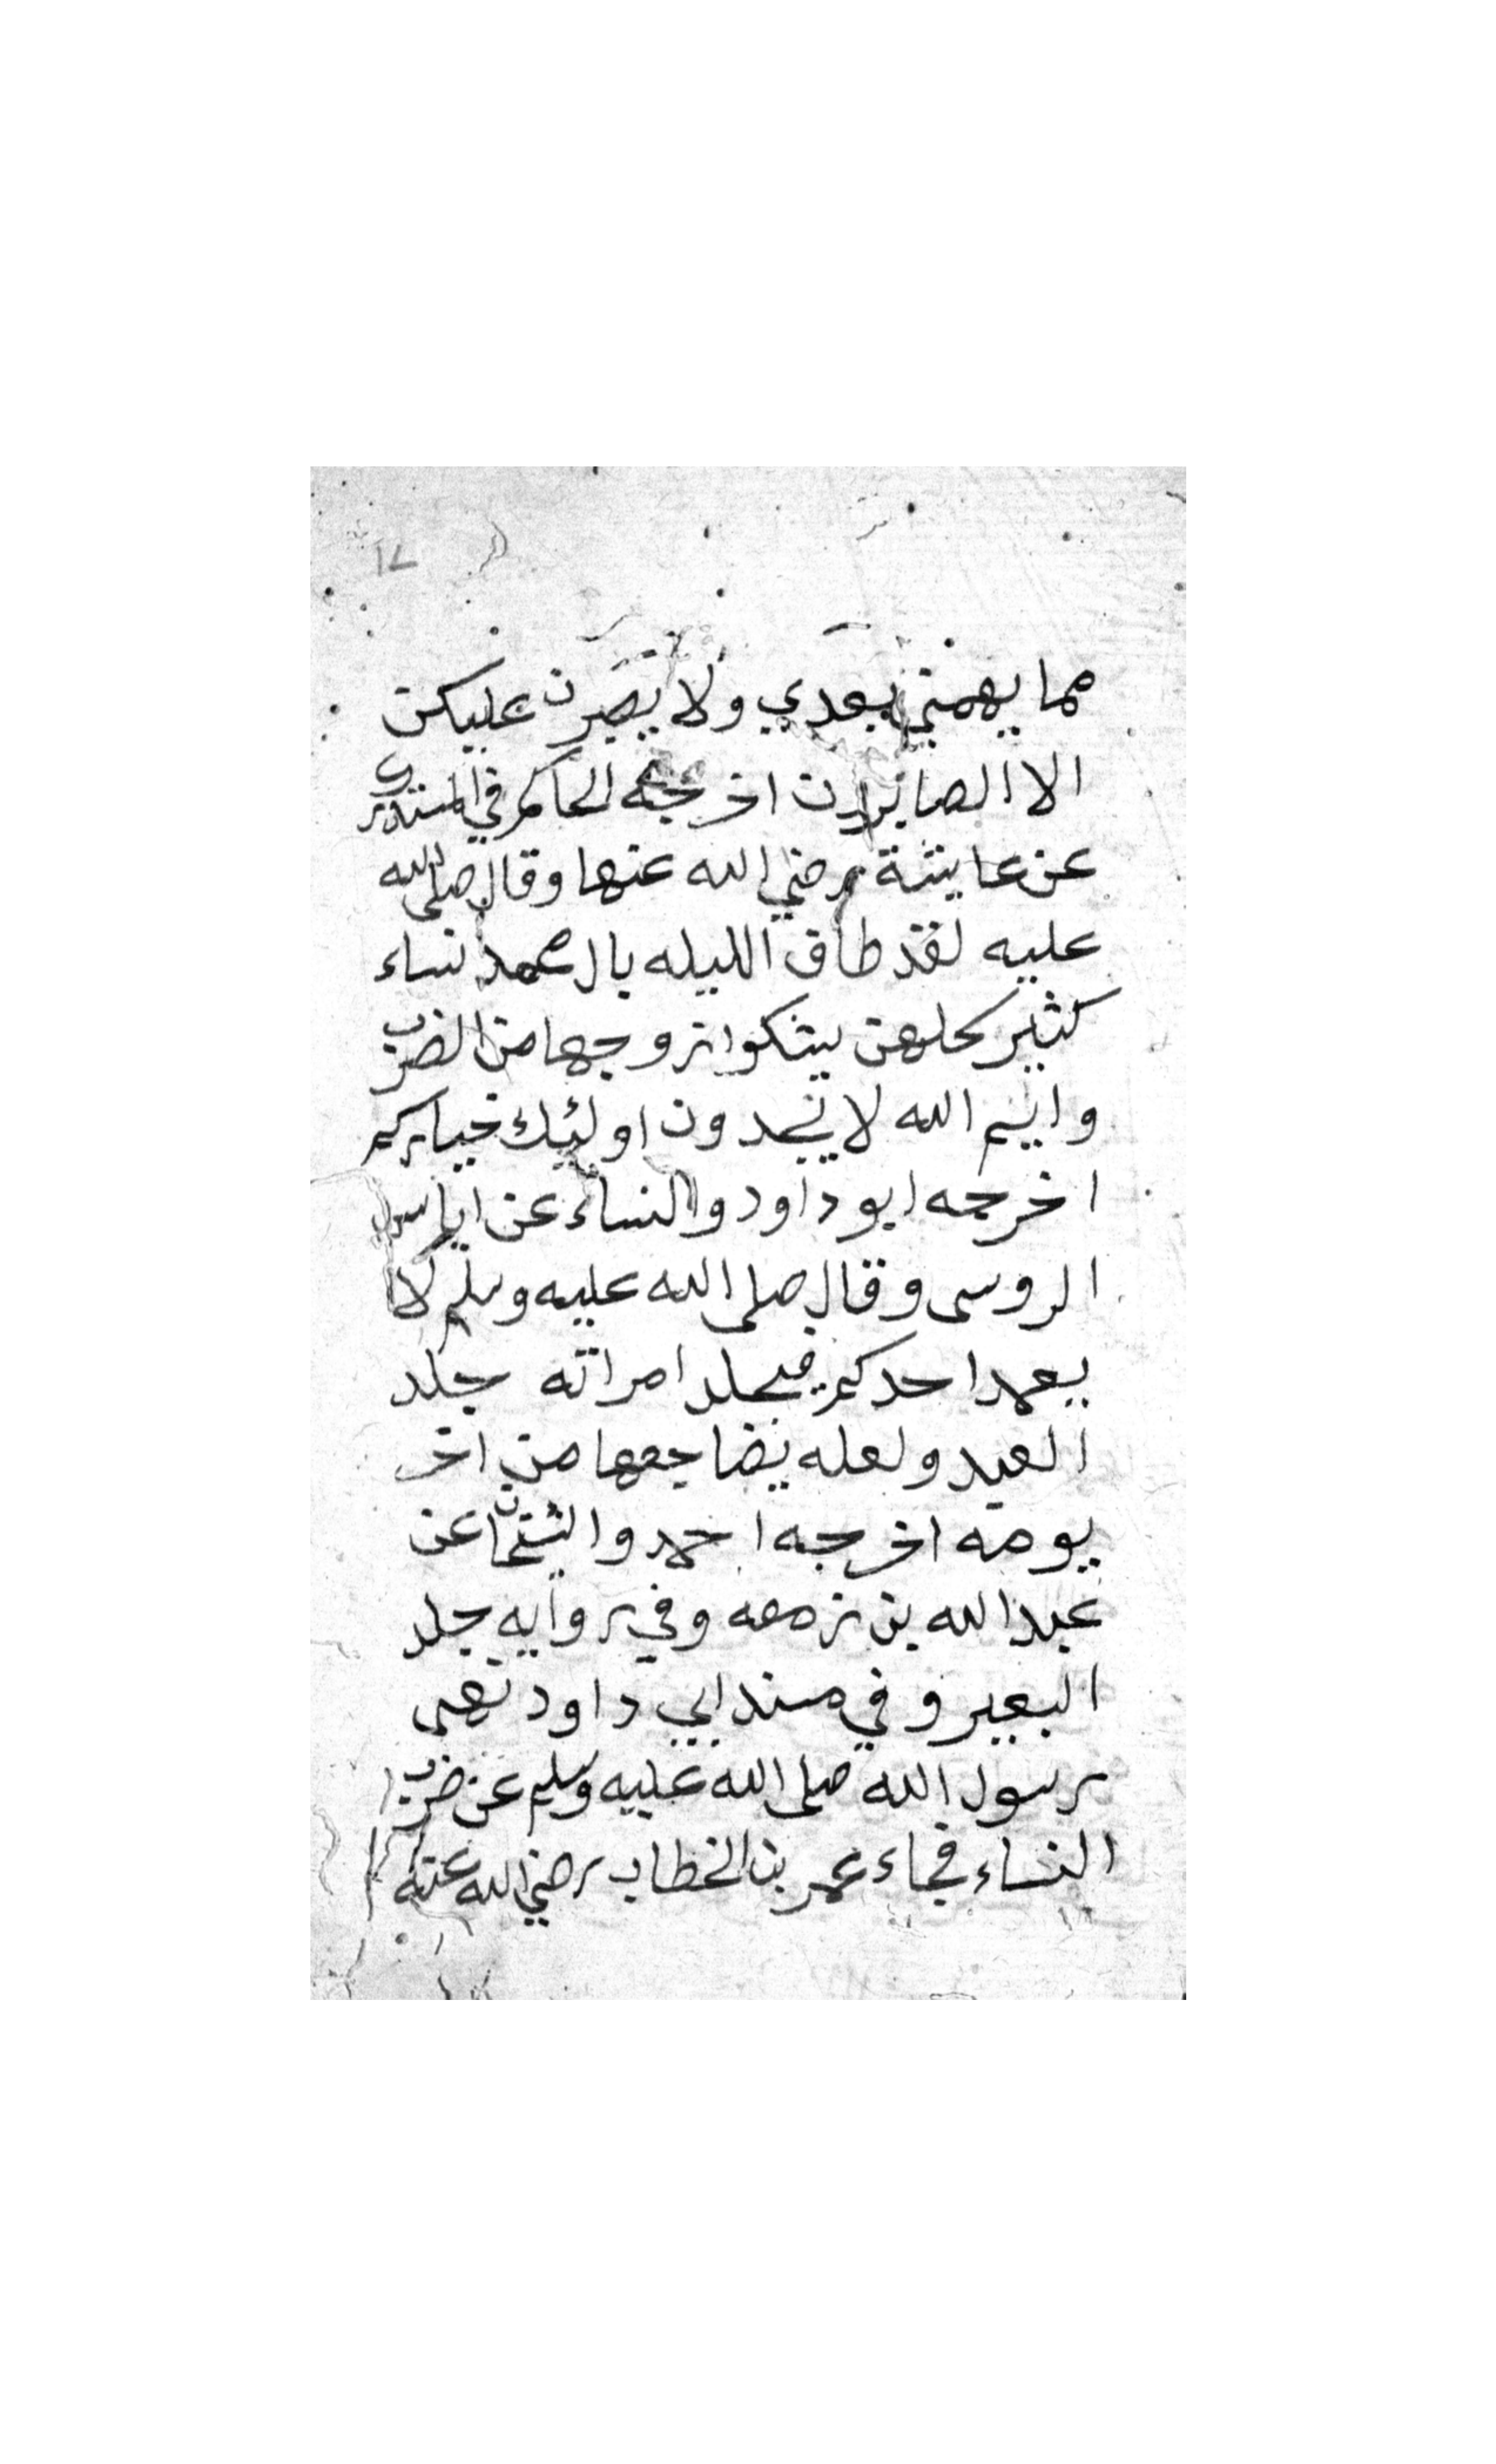 ١٧
مما يهمني بعدي ولا يصبرن عليكن
الا الصابرون اخرجه الحاكم في المستدرك
عن عايشة رضي الله عنها وقال صلى الله
عليه لقد طاف الليله بال محمد نساء
كثير كلهن يشكوا زوجها من الضرب
وايم الله لا تجدون اولئك خياركم
اخرجه ابو داود والنساء عن اياس
الدوسى وقال صلى الله عليه وسلم لا
يعمد احدكم فيجلد امراته جلد
العبد ولعله يضاجعها من اخر
يومه اخرجه احمد والشيخان عن
عبد الله بن زمعه وفي روايه جلد
البعير وفي مسند ابي داود نهى
رسول الله صلى الله عليه وسلم عن ضرب
النساء فجاء عمر بن الخطاب رضي الله عنه